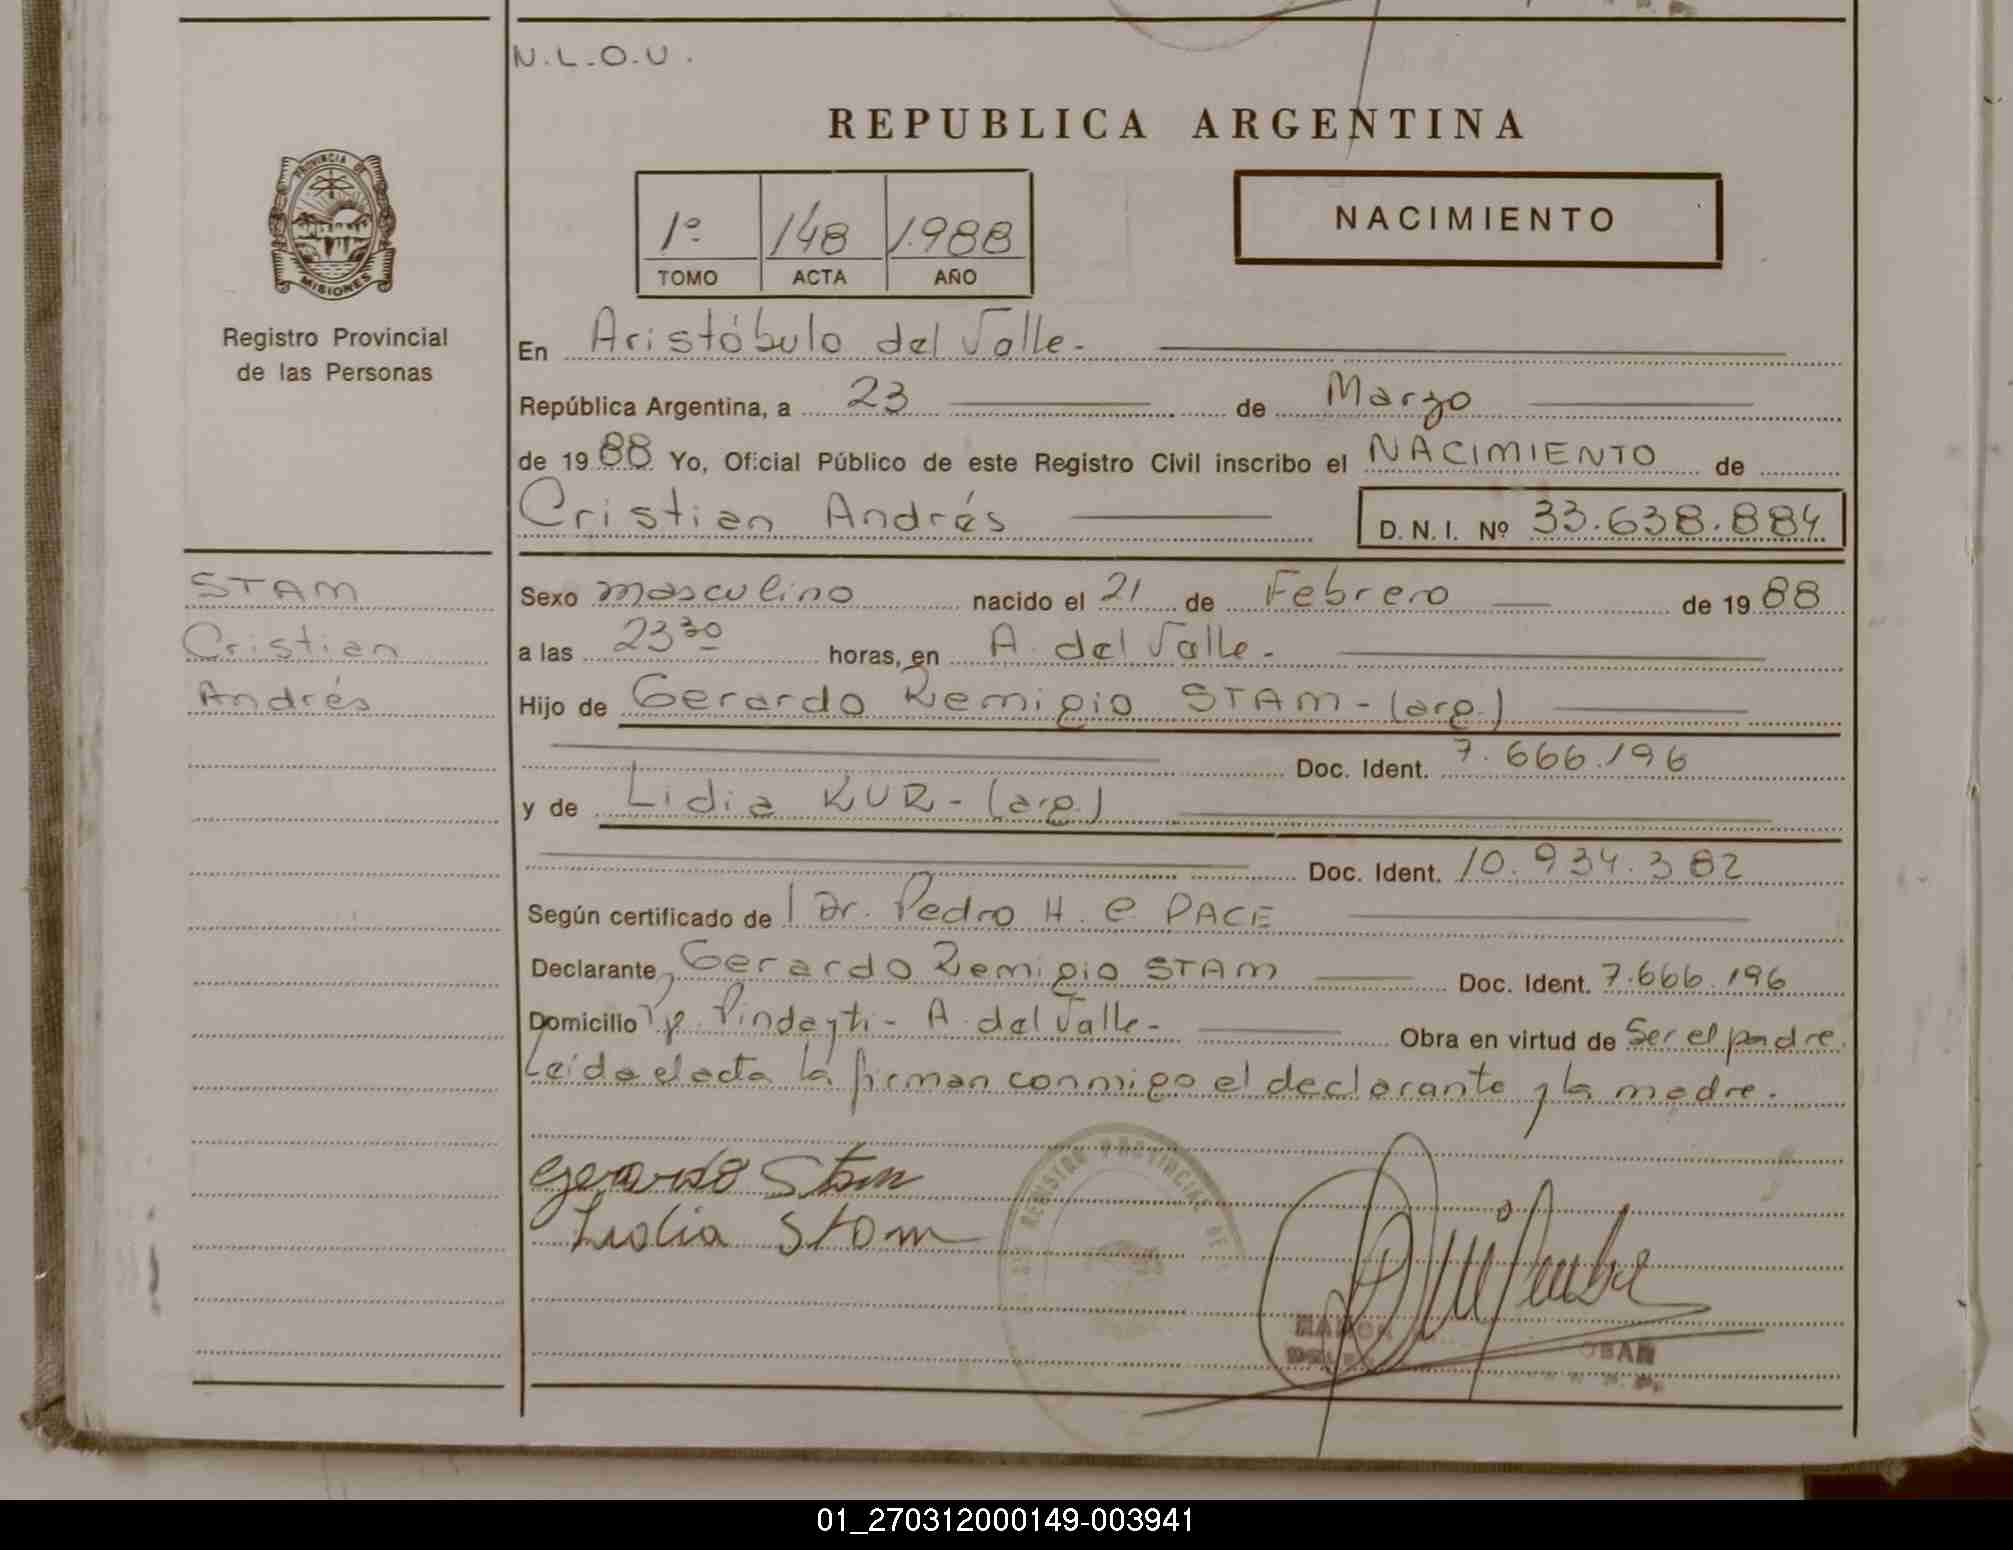 N.L.O.U.
REPUBLICA ARGENTINA
PROVINCIA DE
MISIONES
Registro Provincial
de las Personas
1º 148 1.988
TOMO ACTA AÑO
NACIMIENTO
En Aristóbulo del Valle-
República Argentina, a 23 de Marzo
de 19 88 Yo, Oficial Público de este Registro Civil inscribo el NACIMIENTO de
Cristian Andrés D. N. I. Nº 33.638.884
STAM
Cristian
Andrés
Sexo masculino nacido el 21 de Febrero de 19 88
a las 23 30 horas, en A. del Valle-
Hijo de Gerardo Remigio STAM- (arg.)
Doc. Ident. 7.666.196
y de Lidia KUR- (arg.)
Doc. Ident. 10.934.382
Según certificado de Dr. Pedro H. e PACE
Declarante, Gerardo Remigio STAM Doc. Ident. 7.666.196
Domicilio Pindayti- A. del Valle- Obra en virtud de Ser el padre.
Leída el acta la firman conmigo el declarante y la madre.
Gerardo Stam
Lidia Stam
REGISTRO PROVINCIAL DE
01_270312000149-003941